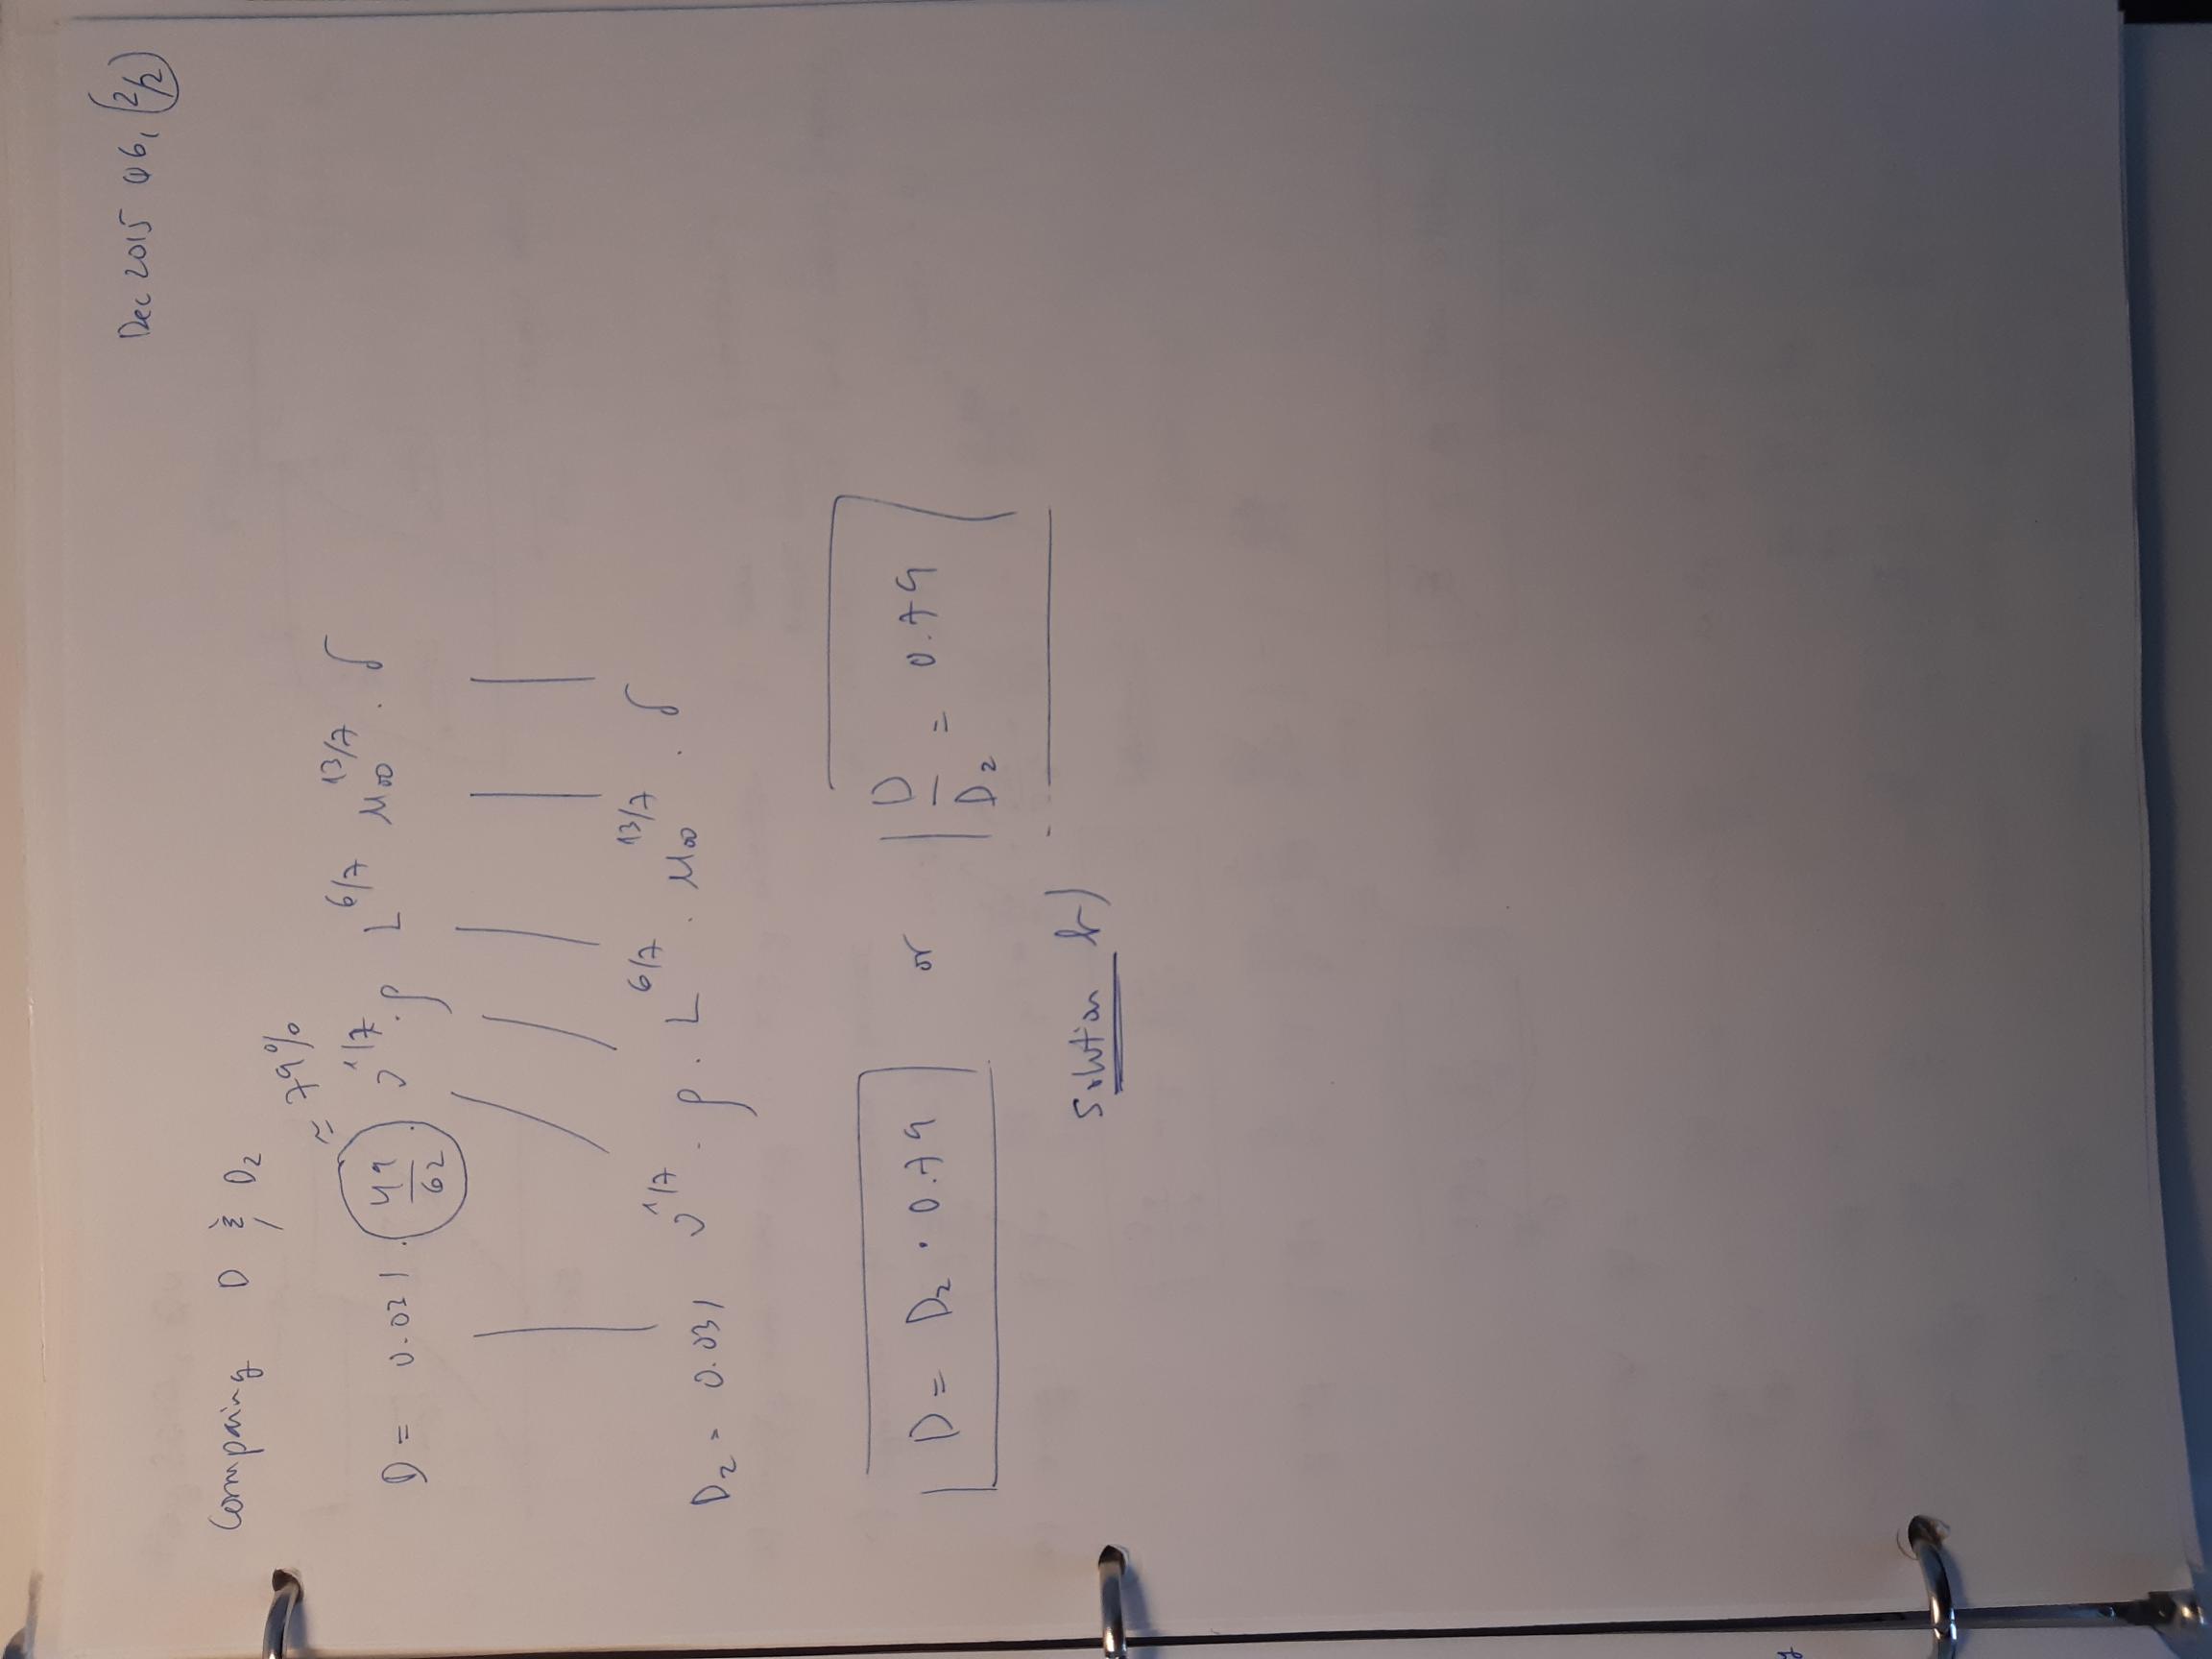 Dec 2015 Q6, (2/2)
Comparing D & D₂
≈ 79%
D = 0.031 · 49/62 · ν^1/7 · ρ L^6/7 U∞^13/7 · δ
D₂ = 0.031 ν^1/7 · ρ · L^6/7 · U∞^13/7 · δ
D = D₂ · 0.79 or D/D₂ = 0.79
Solution b)
y